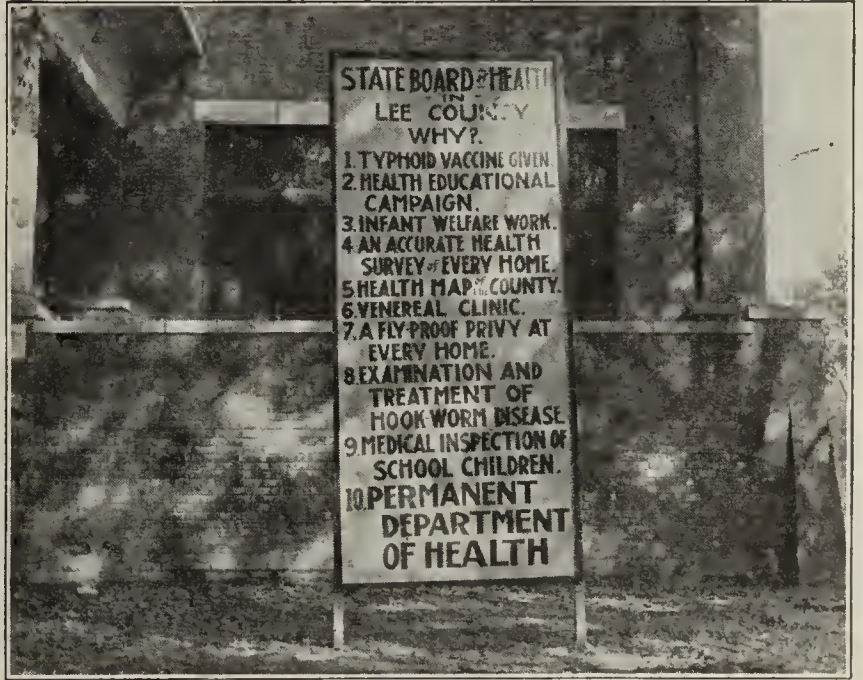 STATE BOARD OF HEALTH
IN
LEE COUNTY
WHY?
1. TYPHOID VACCINE GIVEN.
2. HEALTH EDUCATIONAL
CAMPAIGN.
3. INFANT WELFARE WORK.
4 AN ACCURATE HEALTH
SURVEY OF EVERY HOME.
5. HEALTH MAP OF THE COUNTY.
6. VENEREAL CLINIC.
7. A FLY-PROOF PRIVY AT
EVERY HOME.
8. EXAMINATION AND
TREATMENT OF
HOOK-WORM DISEASE.
9. MEDICAL INSPECTION OF
SCHOOL CHILDREN.
10. PERMANENT
DEPARTMENT
OF HEALTH